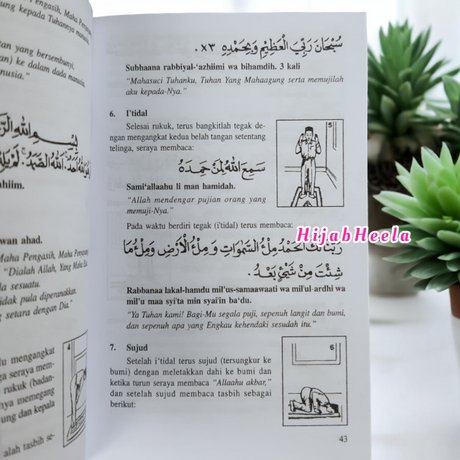 Pengasih, Maha Penyayang
kepada Tuhannya manusia,
tan yang bersembunyi,
kan) ke dalam dada manusia,
nusia."
بِسْمِ اللهِ الرَّ
ahiim.
wan ahad.
Pengasih, Maha Penyayang
"Dialah Allah, Yang Maha Esa
sesuatu.
tidak pula diperanakkan.
mengangkat
rukuk (badan-
nya memegang
ng dan kepala
alah tasbih se-
4
سُبْحَانَ رَبِّيَ الْعَظِيْمِ وَبِحَمْدِهِ ×٣.
Subhaana rabbiyal-'azhiimi wa bihamdih. 3 kali
"Mahasuci Tuhanku, Tuhan Yang Mahaagung serta memujilah
aku kepada-Nya."
6. I'tidal
Selesai rukuk, terus bangkitlah tegak de-
ngan mengangkat kedua belah tangan setentang
telinga, seraya membaca:
5
سَمِعَ اللهُ لِمَنْ حَمِدَهُ
Sami'allaahu li man hamidah.
"Allah mendengar pujian orang yang
memuji-Nya."
Pada waktu berdiri tegak (i'tidal) terus membaca:
HijabHeela
رَبَّنَا لَكَ الْحَمْدُ مِلْءُ السَّمٰوَاتِ وَمِلْءُ الْأَرْضِ وَمِلْءُ مَا
شِئْتَ مِنْ شَيْءٍ بَعْدُ.
Rabbanaa lakal-hamdu mil'us-samaawaati wa mil'ul-ardhi wa
mil'u maa syi'ta min syai'in ba'du.
"Ya Tuhan kami! Bagi-Mu segala puji, sepenuh langit dan bumi,
dan sepenuh apa yang Engkau kehendaki sesudah itu."
7. Sujud
Setelah i'tidal terus sujud (tersungkur ke
bumi) dengan meletakkan dahi ke bumi dan
ketika turun seraya membaca "Allaahu akbar,"
dan setelah sujud membaca tasbih sebagai
berikut:
6
43